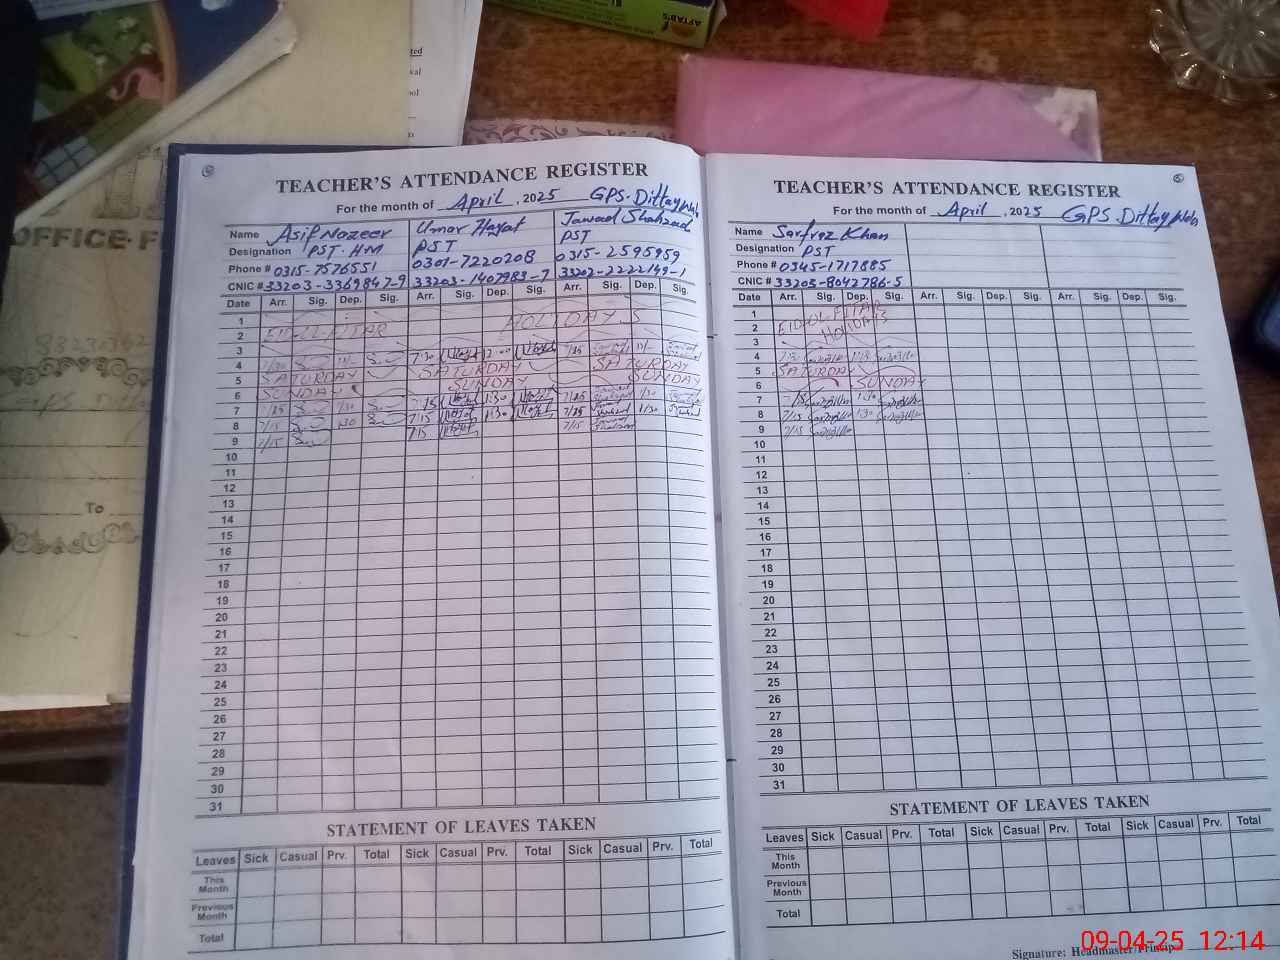 AFTAB'S
OFFICE F
To
TEACHER'S ATTENDANCE REGISTER
For the month of April, 2025 GPS. Dittaywala
Name Asif Nazeer Umar Hayat Jawad Shahzad
Designation PST. H.M PST PST
Phone # 0315-7576551 0301-7220208 0315-2595959
CNIC # 33203-3369847-9 33203-1407983-7 33202-2222149-1
Date Arr. Sig. Dep. Sig. Arr. Sig. Dep. Sig. Arr. Sig. Dep. Sig.
1
2 EID-UL-FITAR HOLIDAYS
3
4 7:30 7:30 7/25
5 SATURDAY SATURDAY SATURDAY
6 SUNDAY SUNDAY SUNDAY
7 7/25 1/30 7/15 1:30 7/25 1/30
8 7/15 1:30 7/15 1:30 7/25 1/30
9 7/15 7/15 7/15
10
11
12
13
14
15
16
17
18
19
20
21
22
23
24
25
26
27
28
29
30
31
STATEMENT OF LEAVES TAKEN
Leaves Sick Casual Prv. Total Sick Casual Prv. Total Sick Casual Prv. Total
This Month
Previous Month
Total
TEACHER'S ATTENDANCE REGISTER
For the month of April, 2025 GPS. Dittaywala
Name Sarfraz Khan
Designation PST
Phone # 0345-1717885
CNIC # 33203-8042786-5
Date Arr. Sig. Dep. Sig. Arr. Sig. Dep. Sig. Arr. Sig. Dep. Sig.
1
2 EID-UL-FITAR
3 HOLIDAYS
4 7:30
5 SATURDAY
6 SUNDAY
7 7/15 1:30
8 7/15 1:30
9 7/15
10
11
12
13
14
15
16
17
18
19
20
21
22
23
24
25
26
27
28
29
30
31
STATEMENT OF LEAVES TAKEN
Leaves Sick Casual Prv. Total Sick Casual Prv. Total Sick Casual Prv. Total
This Month
Previous Month
Total
Signature: Headmaster/Principal
09-04-25 12:14